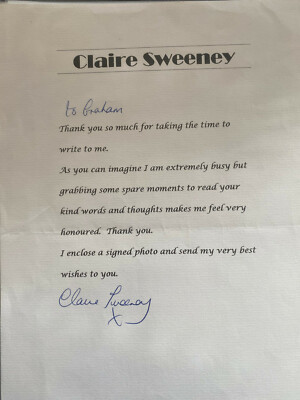 Claire Sweeney
to Graham
Thank you so much for taking the time to
write to me.
As you can imagine I am extremely busy but
grabbing some spare moments to read your
kind words and thoughts makes me feel very
honoured. Thank you.
I enclose a signed photo and send my very best
wishes to you.
Claire Sweeney
X